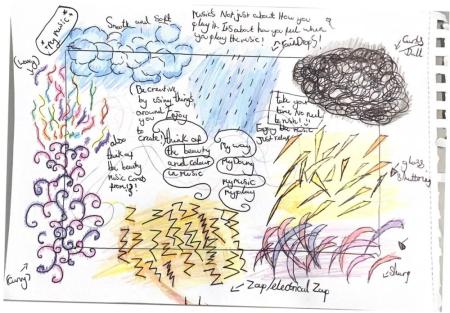 *My Music*
Smooth and Soft
Music's Not just about How you
play it. Its about how you feel when
you play the music!
RainDrops!
Dull
(Wavy)
Be creative
by using things
around
you
to
create!
Enjoy
take
your
time No need
to rush!!!
Enjoy the music
Just relax
also
think of
the beauty
Music comes
from!
think of
the beauty
and colour
in music
My way
My being
my music
my play
glass
shattering
(curvy)
Zap/electrical Zap